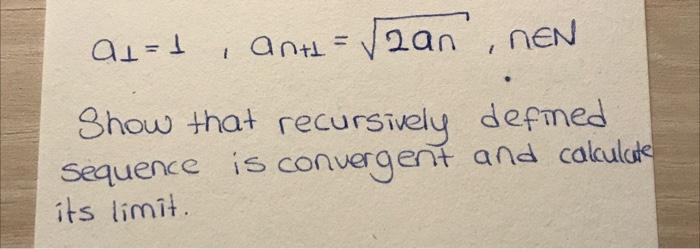 a₁ = 1 , aₙ₊₁ = √2aₙ , n∈N
Show that recursively defined
sequence is convergent and calculate
its limit.